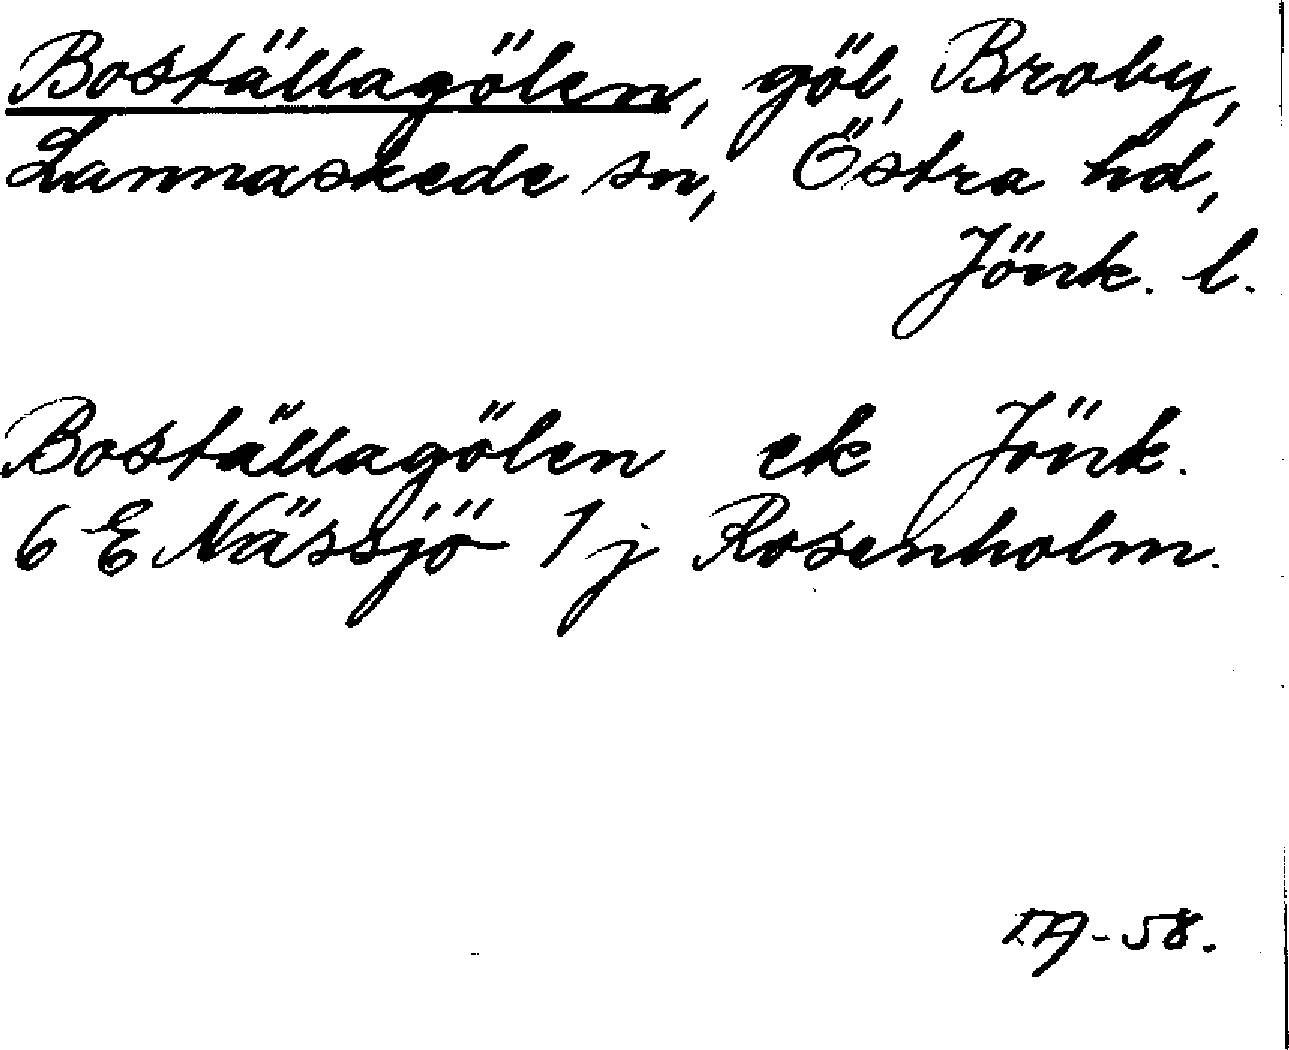 Boställagölen, göl, Broby,
Lannaskede sn, Östra hd,
Jönk. l.
Boställagölen ek Jönk.
6 E Nässjö 1j Rosenholm.
TA-58.